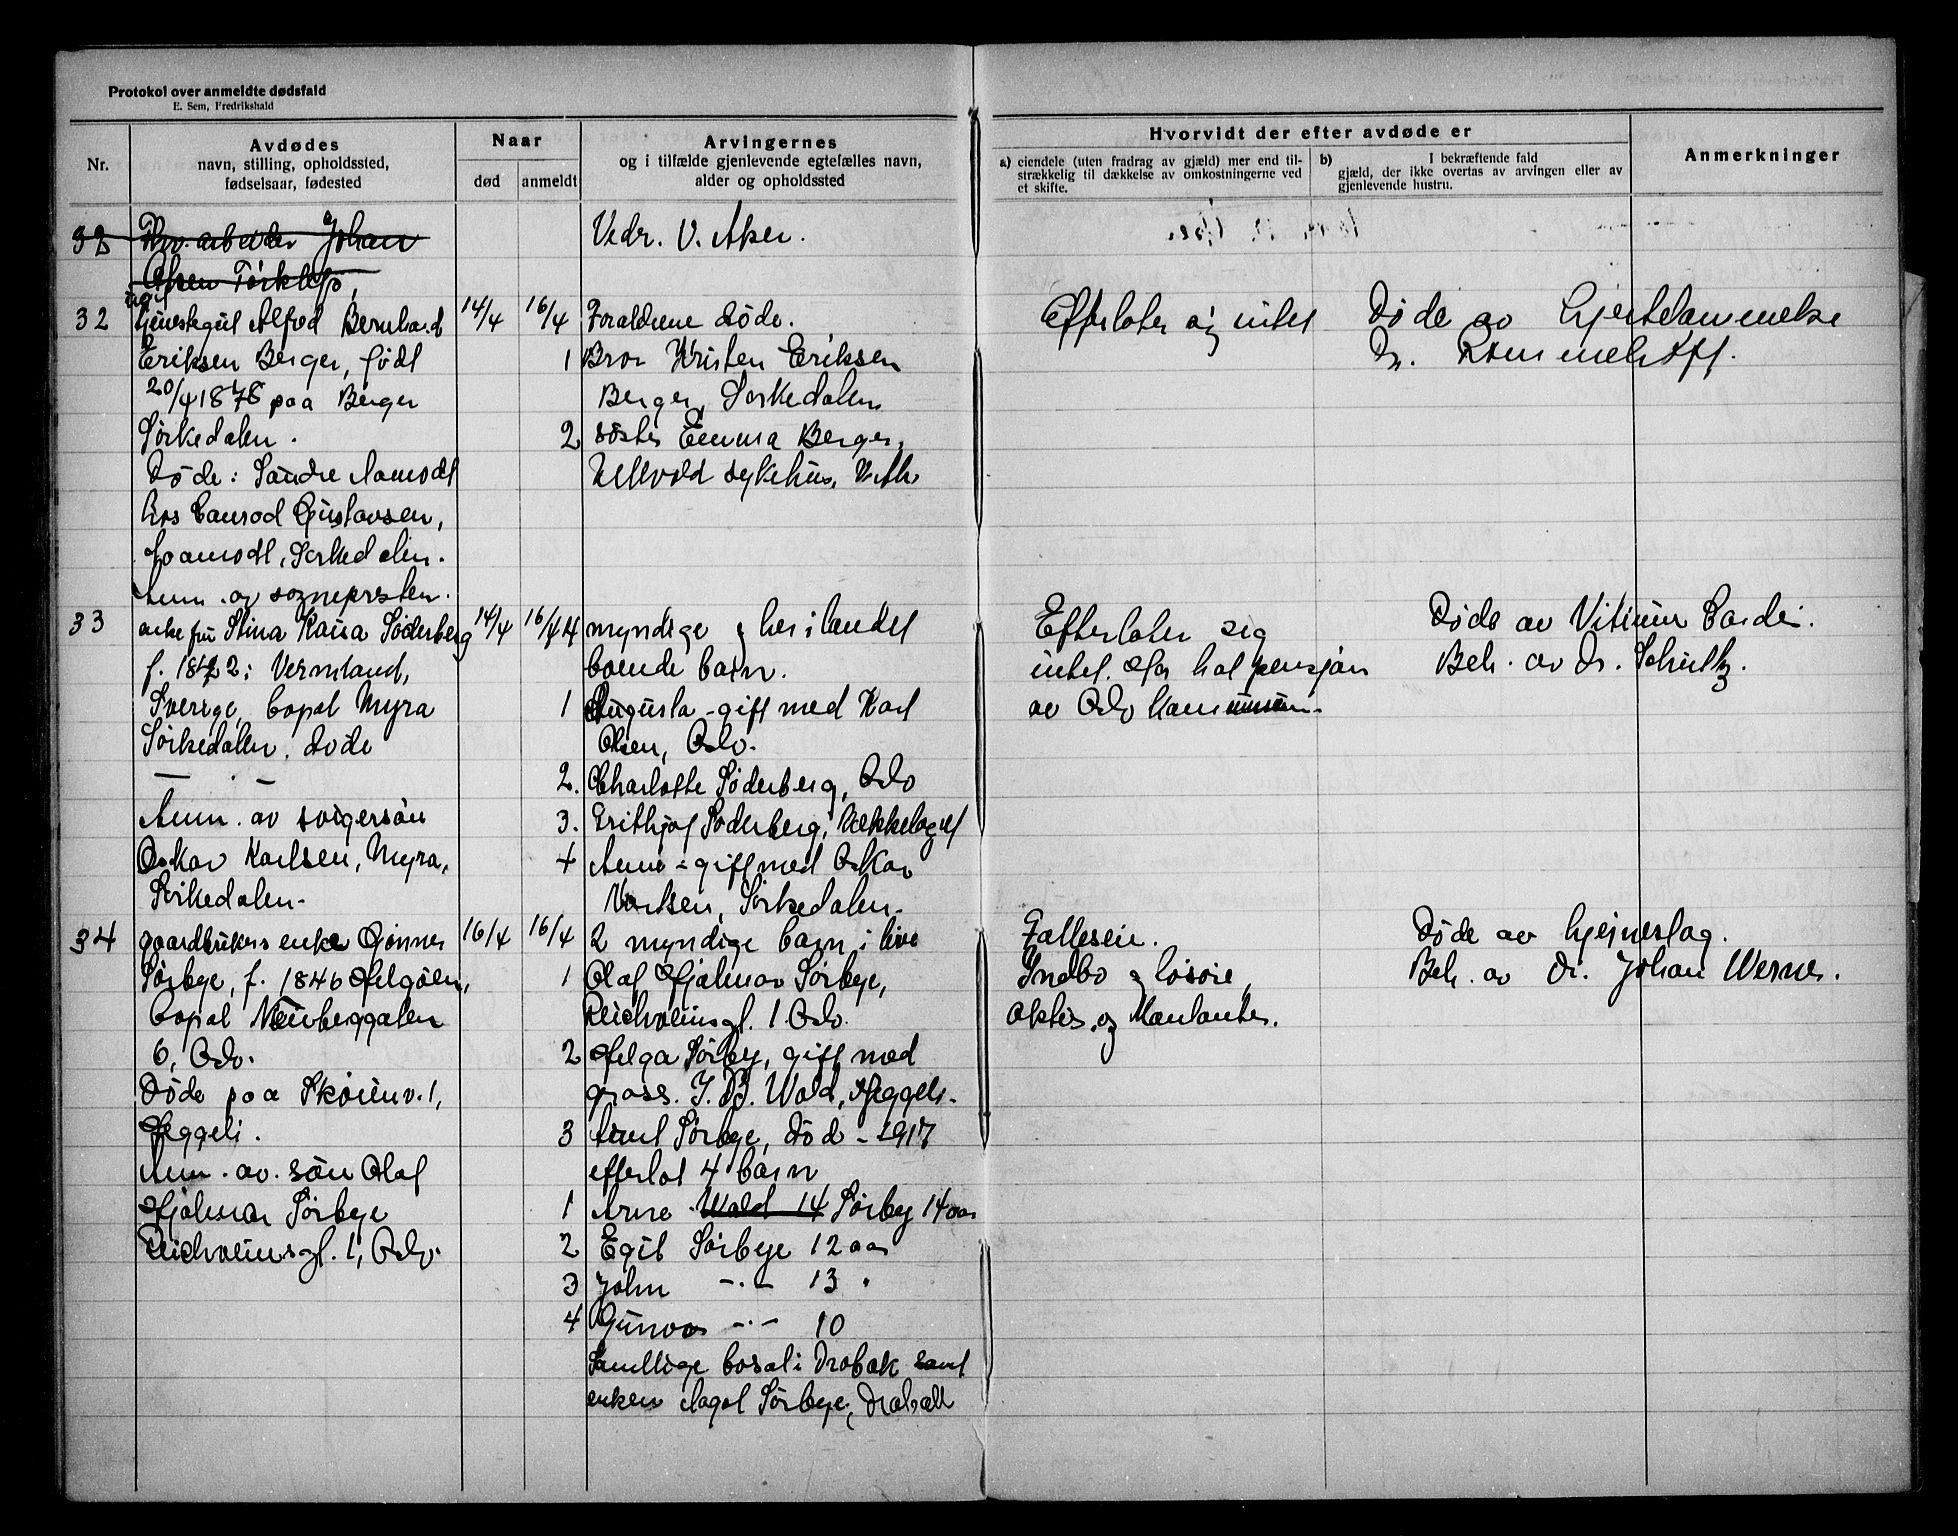 Protokol over anmeldte dødsfald
E. Sem, Fredrikshald
Nr.
Avdødes
navn, stilling, opholdssted,
fødselsaar, fødested
Naar
død
anmeldt
Arvingernes
og i tilfælde gjenlevende egtefælles navn,
alder og opholdssted
Hvorvidt der efter avdøde er
a) eiendele (uten fradrag av gjæld) mer end til-
strækkelig til dækkelse av omkostningerne ved
et skifte.
b) I bekræftende fald
gjæld, der ikke overtas av arvingen eller av
gjenlevende hustru.
Anmerkninger
32 arbeider Johan
Olsen
Vedr. V. Aker.
32 ugift
tjenestegut Alfred Bernhard
Eriksen Berger, født
20/4 1878 paa Berger
Sørkedalen.
Døde: Søndre Aamodt
hos Conrod Gustavsen,
Aamodt, Sørkedalen.
Anm. av sogneprsten.
14/4
16/4
Foraldrene døde.
1 Bror Kristen Eriksen
Berger, Sørkedalen
2 søster Emma Berger,
Ullevold sykehus, V. Ak
Efterlater sig intet
Døde av hjertelammelse
Dr.
33 enkefru Stina Kaisa Søderberg
f. 1842 i Vermland,
Sverige, bopæl Myra
Sørkedalen. døde
— . —
Anm. av svigersøn
Oskar Karlsen, Myra,
Sørkedalen.
14/4
16/4
4 myndige og her i landet
boende barn.
1 Augusta - gift med Karl
Olsen, Oslo.
2. Charlotte Søderberg, Oslo
3. Frithjof Søderberg, Bækkelaget
4 Anna - gift med Oskar
Karlsen, Sørkedalen.
Efterlater sig
intet. Har hat pensjon
av Oslo kommune.
Døde av Vitium Cordis.
Beh. av dr. Schultz.
34 gaardbrukers enke Gønner
Sørbye, f. 1846 Helgøen,
Bopæl Neuberggaten
6, Oslo.
Døde paa Skøienv. 1,
Heggeli.
Anm. av. søn Olaf
Hjalmar Sørbye
Reichweinsgt. 1, Oslo.
16/4
16/4
2 myndige barn i live
1 Olaf Hjalmar Sørbye,
Reichweinsgt. 1 Oslo.
2 Helga Sørby, gift med
gross. I. B. Wold, Heggeli.
3 Arnt Sørbye, død - 1917
efterlot 4 barn
1 Arne Wold 14 Sørby 14 aar
2 Egil Sørbye 12 aar
3 John -.- 13 "
4 Gunvor -.- 10
Samtlige bosat i Drøbak samt
enken Aagot Sørbye, Drøbak
Fælleseie.
Indbo og løsøre,
Aktier og
Døde av hjerneslag.
Beh. av dr. Johan Werner.